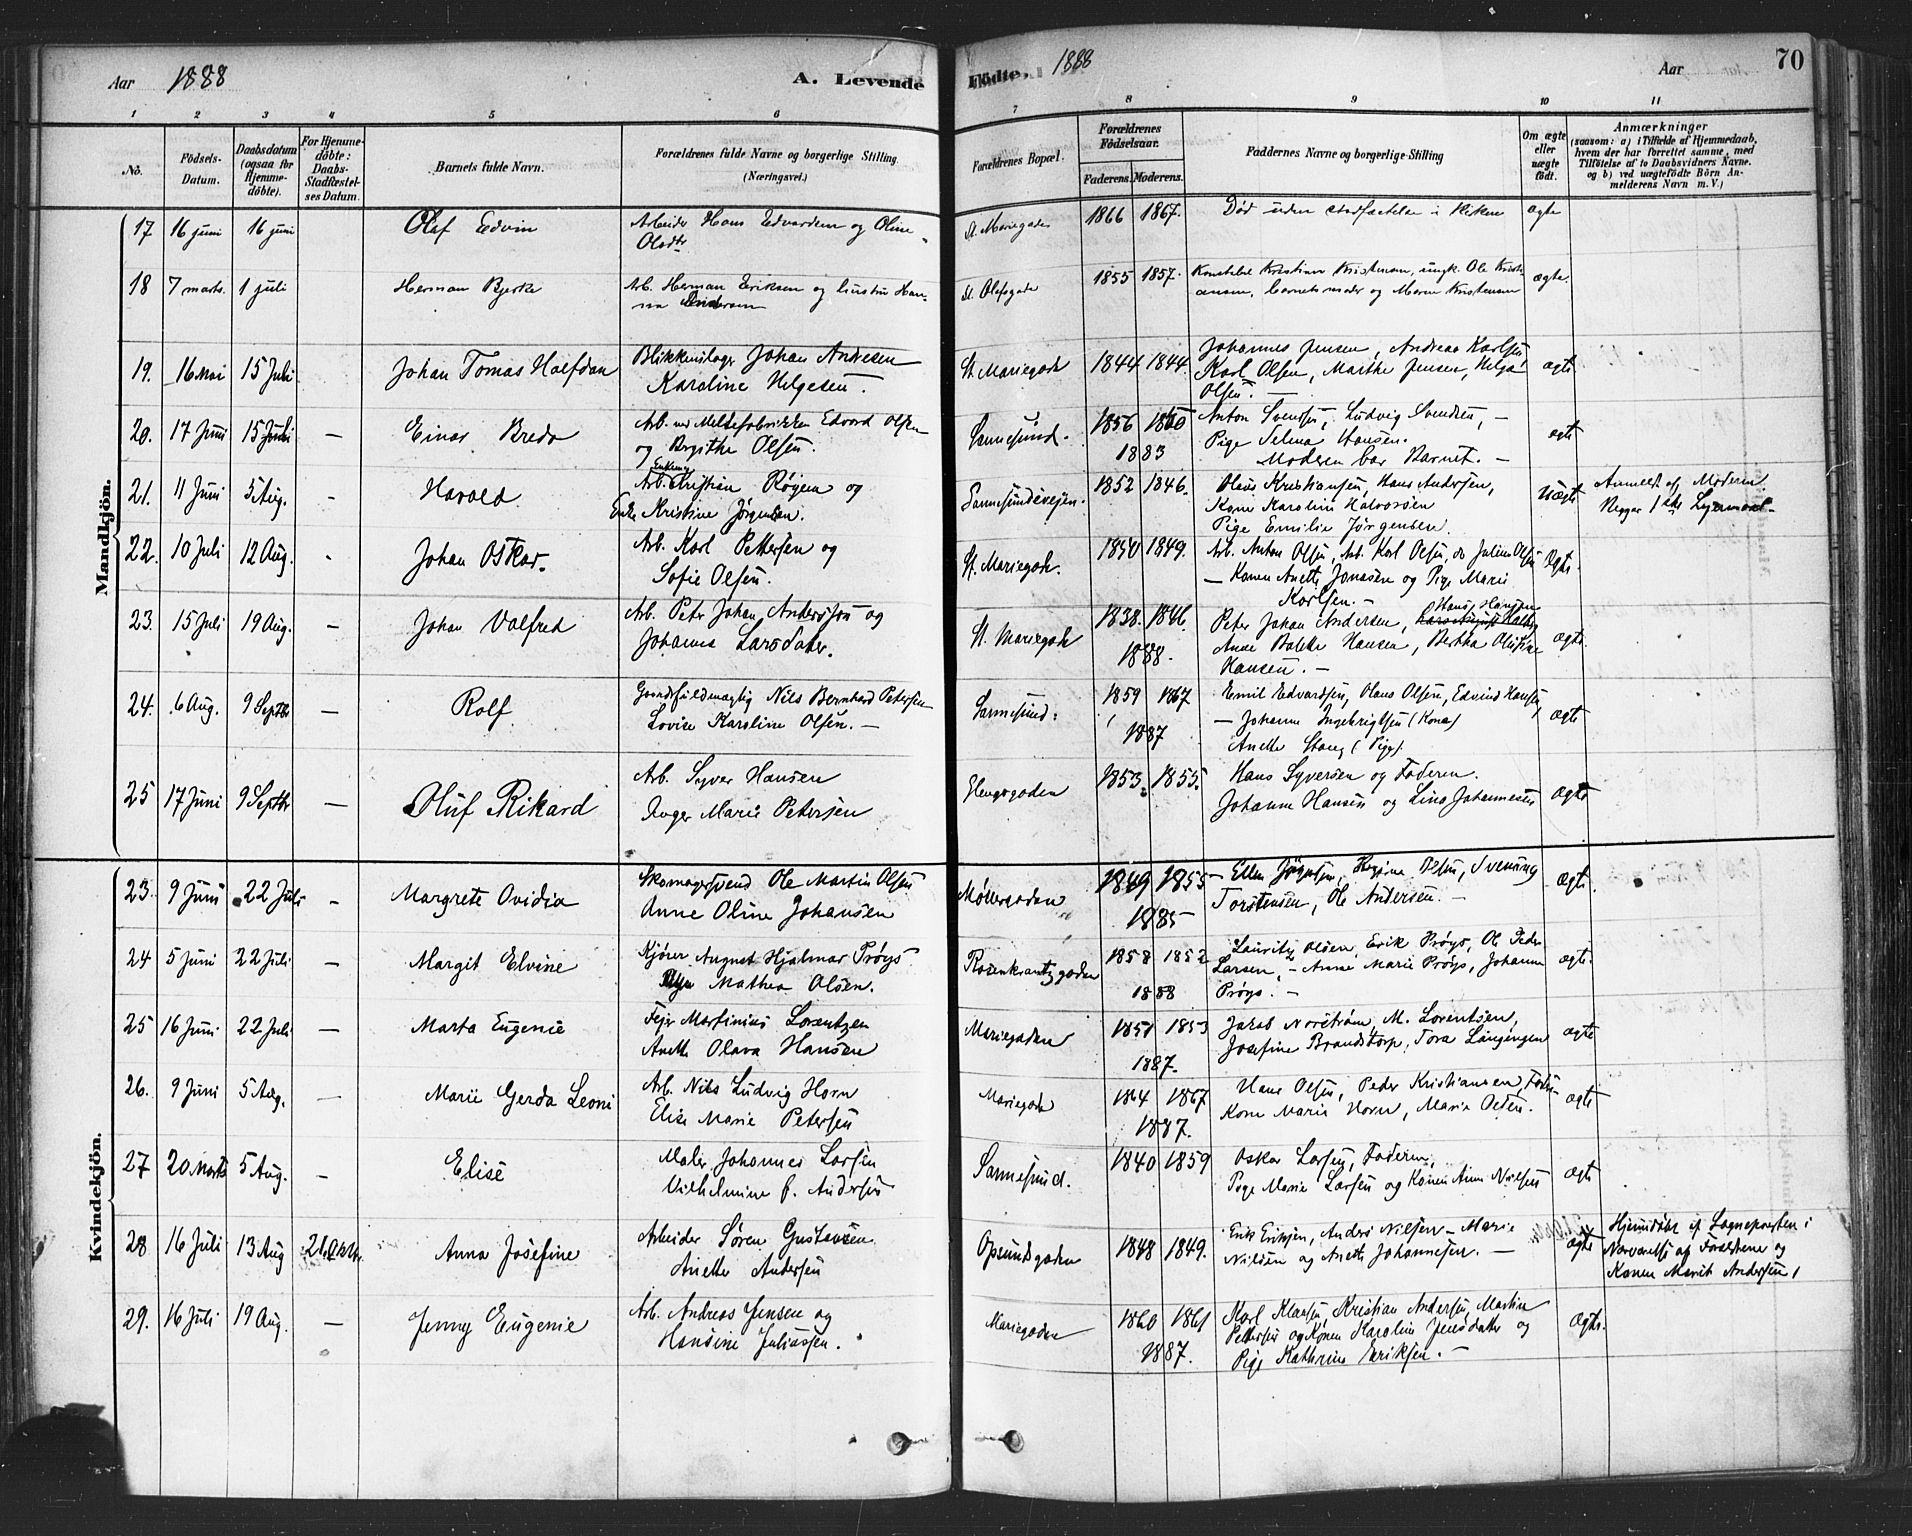 Aar 1888 A. Levende Födte. 1888 Aar 70
1 2 3 4 5 6 7 8 9 10 11
No. Födsels-Datum. Daabsdatum (ogsaa for Hjemmedöbte). For Hjemmedöbte: Daabs-Stadfæstelses Datum. Barnets fulde Navn. Forældrenes fulde Navne og borgerlige Stilling. (Næringsvei.) Forældrenes Bopæl. Forældrenes Födselsaar. Faderens. Moderens. Faddernes Navne og borgerlige Stilling Om ægte eller uægte födt. Anmærkninger (saasom: a) i Tilfælde af Hjemmedaab, hvem der har forrettet samme, med Tilföielse af to Daabsvidners Navne. og b) ved uægtefödte Börn Anmelderens Navn m. V.)
Mandkjön.
17 16 juni 16 juni Olaf Edvin Arbeider Hans Edvardsen og Oline Olsdtr St. Mariegade 1866 1867. Død uden stadfæstelse i Kirken ægte
18 7 marts. 1 juli Herman Bjerke Arb. Herman Eriksen og Andersen St. Olafsgade 1855 1857. Kristian Kristensen, ungk. Ole Kristiansen, barnets moder og Maren Kristensen ægte
19. 16 Mai 15 Juli Johan Tomas Halfdan Blikkenslager Johan Andresen Karoline Helgesen. St. Mariegade 1844 1844. Johannes Jensen, Andreas Karlsen Karl Olsen, Marthe Jensen, Helga Olsen. — ægte
20. 17 Juni 15 Juli — Einar Breda Arb. ved Edvard Olsen og Birgithe Olsen. Sannesund. 1856 1860 1883 Anton Svendsen, Ludvig Svendsen, — Pige Selma Hansen. Moderen bar Barnet. — ægte
21. 11 Juni 5 Aug. - Harald. Arb. Enkem. Kristian Røgen og Enke Kristine Jørgensen. Sannesundsveien. 1852 1846. Olaus Kristiansen, Hans Andersen, Kone Karoline Halvorsen Pige Emilie Jørgensen uægte Anmeldt af Moderen Begges 1ste Leiermaal.
22. 10 Juli 12 Aug. - Johan Oskar. Arb. Karl Pettersen og Sofie Olsen. St. Mariegade. 1850 1849. Arb. Anton Olsen, Arb. Karl Olsen, do Julius Olsen — Konen Anette Jonassen og Pige Marie Karlsen. — Ægte.
23. 15 Juli 19 Aug. — Johan Valfred Arb. Peter Johan Andersson og Johanna Larsdater. St. Mariegade 1838. 1846. 1888. Peter Johan Andersen, Hans Hansen Anne Hansen, Bertha Olufine Hansen. — ægte.
24. 6 Aug. 9 Septbr — Rolf. Nils Bernhard Petersen Lovise Karoline Olsen. — Sannesund. 1859 1867 1887 Emil Edvardsen, Olaus Olsen, Edvind Hansen, — Johanne Ingebrigtsen (Kone) Anette Stang (Pige). ægte
25 17 Juni 9 Septbr — Oluf Rikard Arb. Syver Hansen Inger Marie Petersen Glengsgaden 1853. 1855. Hans Syversen og Faderen. Johanne Hansen og Lina Johannesen ægte
Kvindekjön.
23. 9 Juni 22 Juli — Margrete Ovidia Skomagersvend Ole Martin Olsen Anne Oline Johansen Møllergaden 1849 1855 1885 Ellen Jørgensen, Regine Olsen, Svenning Torstensen, Ole Andersen. — ægte.
24 5 Juni 22 Juli — Margit Elvine Kjører August Hjalmar Prøys Mathea Olsen. Rosenkrantzgaden 1858 1852 1888 Lauritz Olsen, Erik Prøys, Ole Peder Larsen, — Anne Marie Prøys, Johanne Prøys. — ægte.
25 16 Juni 22 Juli — Marta Eugenie Fejer Martinius Lorentzen Anette Olava Hansen Mariegaden 1851 1853 1887. Jakob Norstrøm, M. Lorentsen, Josefine Brandstorp, Tora Langengen ægte
26. 9 Juni 5 Aug. — Marie Gerda Leoni Arb. Nils Ludvig Horn Elise Marie Petersen Mariegade 1864 1867 1887. Hans Olsen, Peder Kristiansen, Kone Marie Horn, Marie Olsen. ægte
27 20 Marts 5 Aug. — Elise Maler Johannes Larsen Vilhelmine f. Andersen Sannesund. 1840 1859 Oskar Larsen, Faderen, Pige Marie Larsen og Konen Anne Nilsen ægte
28 16 Juli 13 Aug 21. Oktbr. Anna Josefine Arbeider Søren Gustavsen Anette Andersen Opsundsgaden 1848 1849. Erik Eriksen, Anders Nilsen — Marie Nilsen og Anette Johannesen. — ægte Hjemdøbt af Sognepresten i Forældrene og Konen Marit Andersen,
29. 16 Juli 19 Aug. — Jenny Eugenie Arb. Andreas Jensen og Hansine Juliussen. Mariegaden 1860 1861 1887. Karl Klausen, Kristian Andersen, Martin Pettersen og Konen Karoline Jensdatter og Pige Kathrine Eriksen. — Ægte.